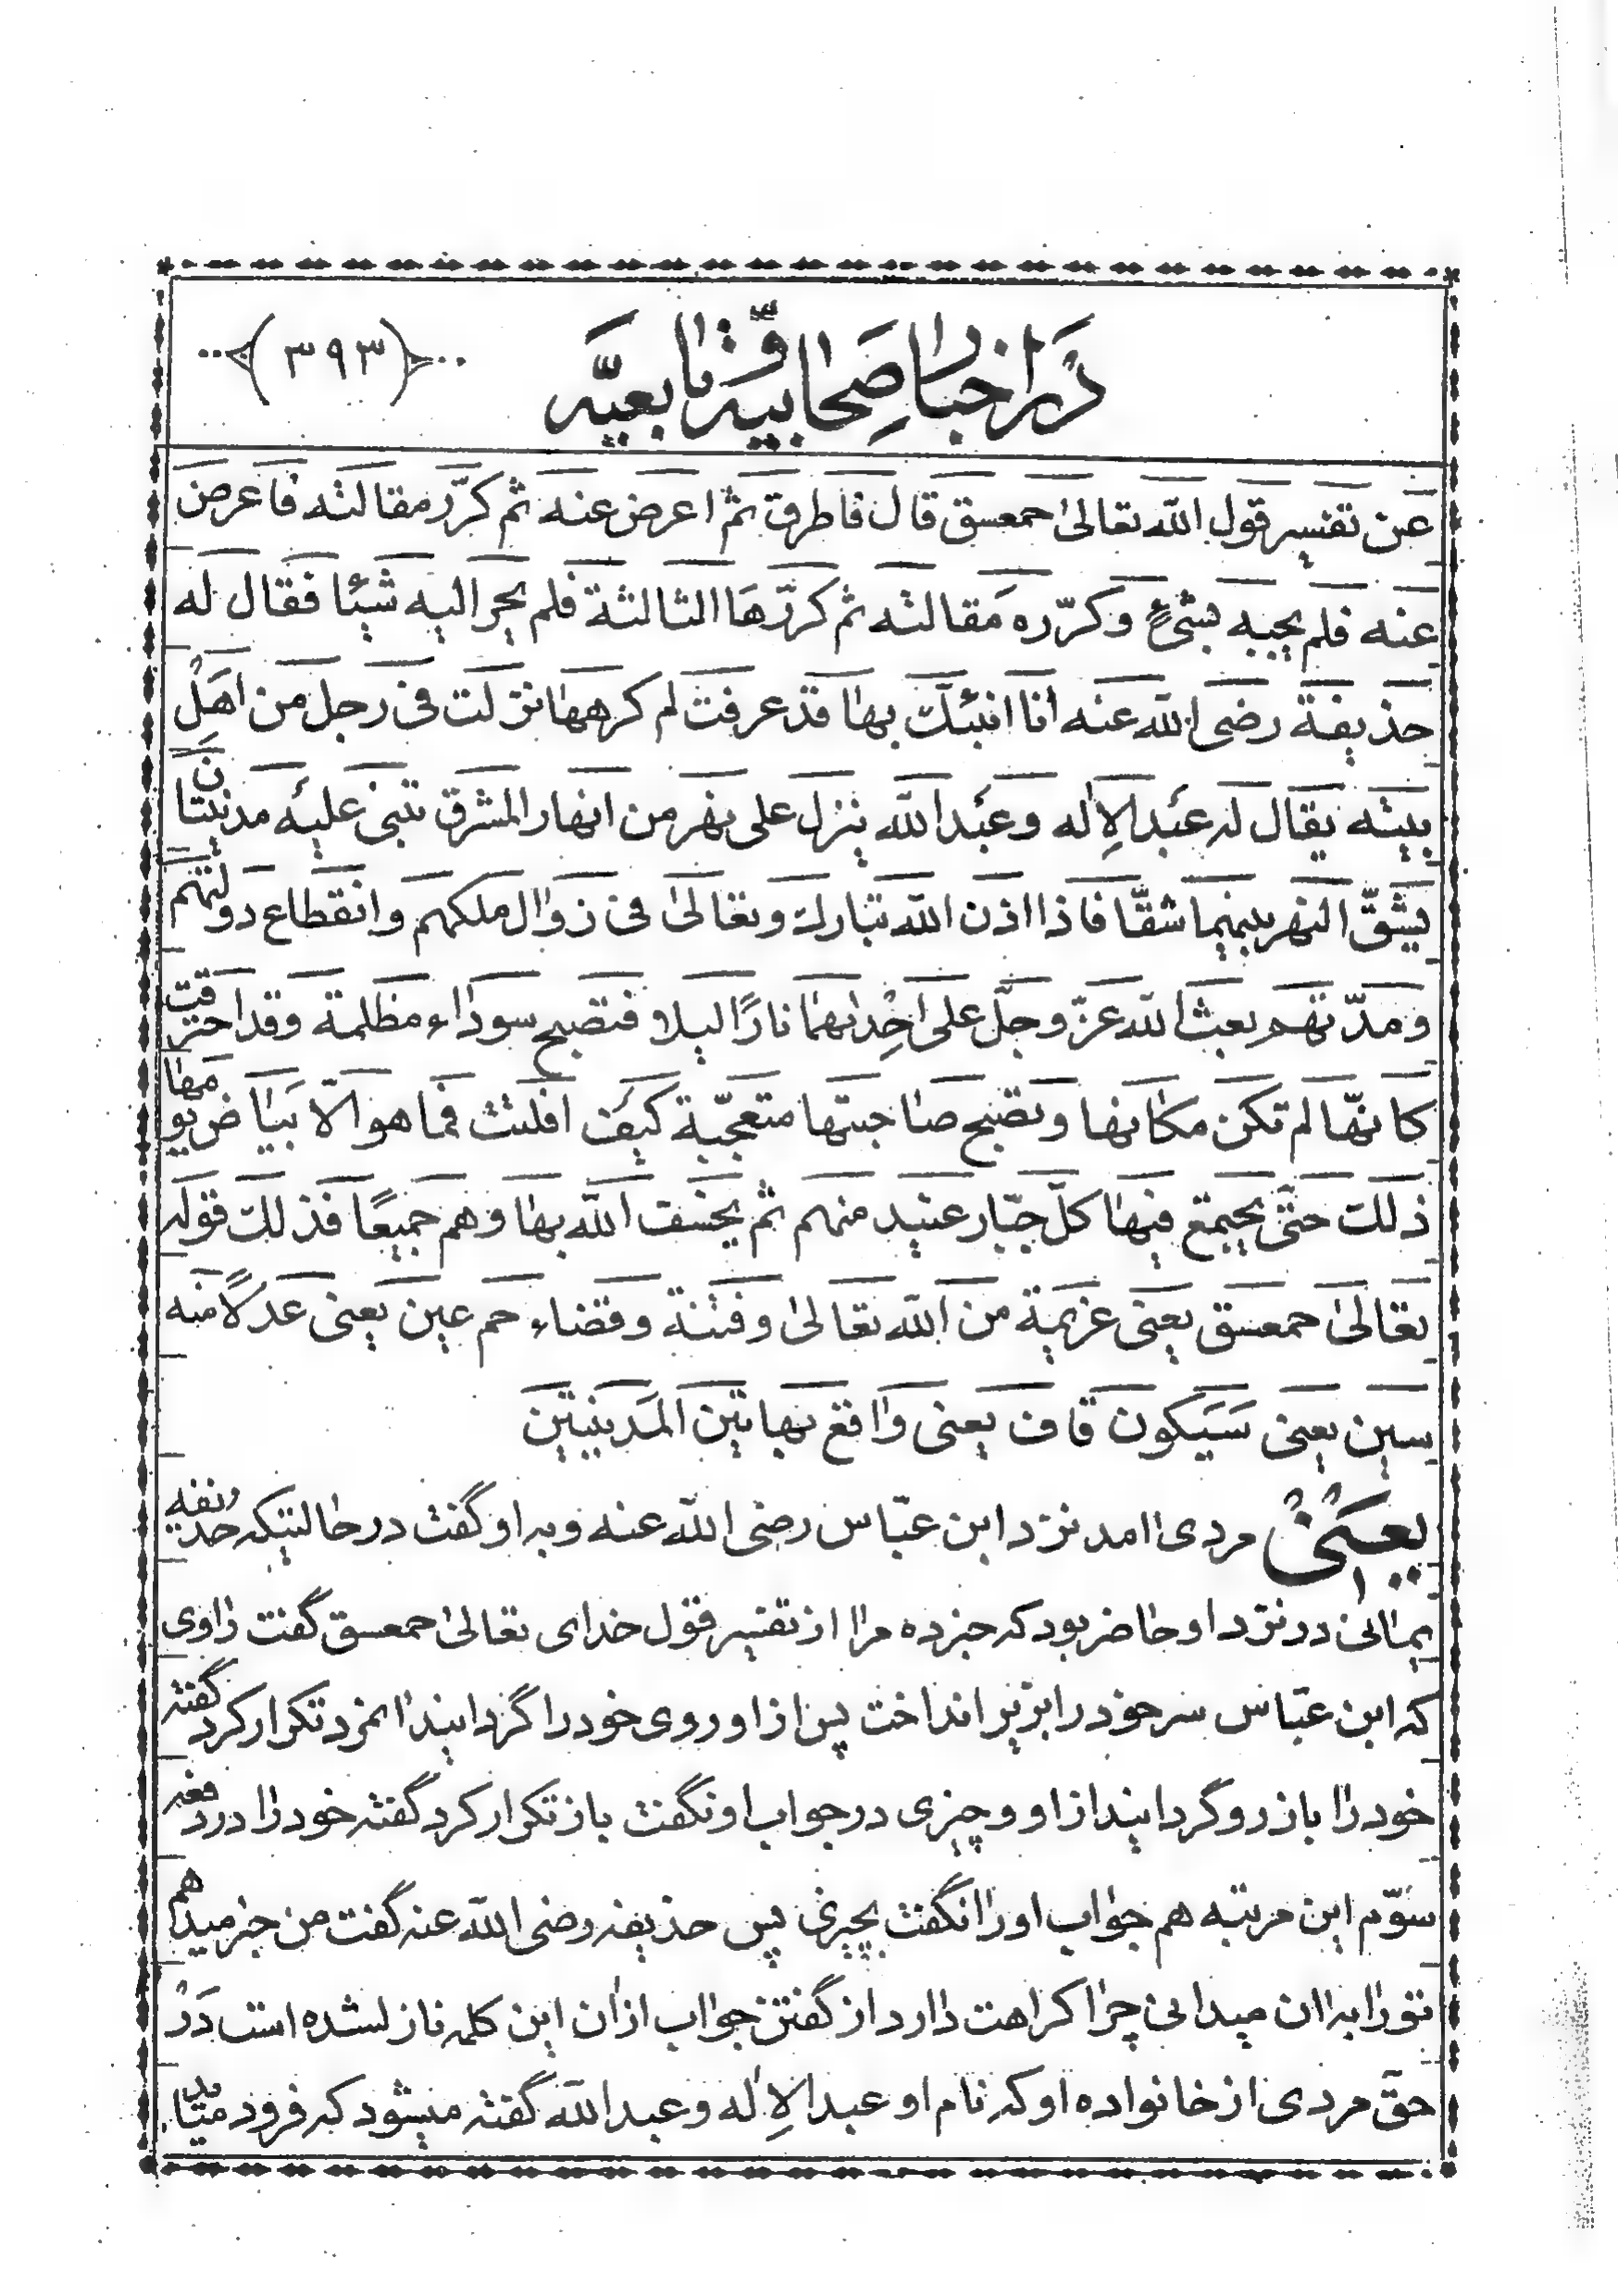 در اخبار صحابیه و تابعیه
(۳۹۳)
عن تفسیر قول الله تعالیٰ حمعسق قال فاطرق ثم اعرض عنه ثم کرّر مقالته فاعرض
عنه فلم یجبه بشیءٍ و کرّره مقالته ثم کرّرها الثالثة فلم یجر الیه شیئا فقال له
حذیفة رضی الله عنه انا انبئک بها قد عرفت لم کرهها نزلت فی رجل من اهل
بیته یقال له عبد الاِلٰه و عبد الله ینزل علی نهر من انهار المشرق تبنی علیه مدینتان
یشقّ النهر بینهما شقّا فاذا اذن الله تبارک و تعالیٰ فی زوال ملکهم و انقطاع دولتهم
و مدّتهم بعث الله عزّ و جلّ علی احدٰیهما نارًا لیلا فتصبح سوداء مظلمة و قد احترقت
کانّها لم تکن مکانها و تصبح صاحبتها متعجّبة کیف افلتت فما هو الّا بیاض یومها
ذلک حتّی یجتمع فیها کلّ جبّار عنید منهم ثم یخسف الله بها و هم جمیعًا فذلک قوله
تعالیٰ حمعسق یعنی عزیمة من الله تعالیٰ و فتنة و قضاء حم عین یعنی عدلًا منه
سین یعنی سیکون قاف یعنی واقع بهاتین المدینتین
یعنی مردی امد نزد ابن عبّاس رضی الله عنه و به او گفت در حالتیکه حذیفه
یمانی در نزد او حاضر بود که خبر ده مرا از تفسیر قول خدای تعالیٰ حمعسق گفت راوی
که ابن عبّاس سر خود را بزیر انداخت پس از او روی خود را گردانید انمرد تکرار کرد گفته
خود را باز رو گردانید از او و چیزی در جواب او نگفت باز تکرار کرد گفته خود را در دفعه
سوّم این مرتبه هم جواب او را نگفت بچیزی پس حذیفه رضی الله عنه گفت من خبر میدهم
تو را به ان میدانی چرا کراهت دارد از گفتن جواب از ان این کلمه نازل شده است در
حقّ مردی از خانواده او که نام او عبد الاِلٰه و عبد الله گفته میشود که فرود میاید